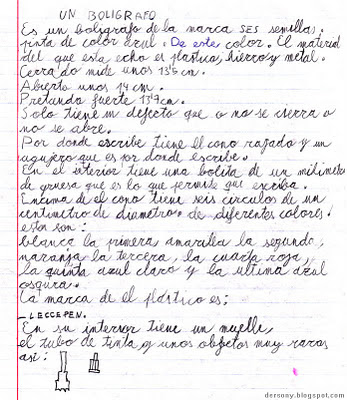 UN BOLIGRAFO
Es un boligrafo de la marca SES semillas.
pinta de color azul. De este color. El material
del que esta echo es plastico, hierro y metal.
Cerrado mide unos 13'5 cm.
Abierto unos 14 cm.
Pretando fuerte 13'9 cm.
Solo tiene un defecto que o no se cierra o
no se abre.
Por donde escribe tiene el cono rajado y un
agujero que es por donde escribe.
En el interior tiene una bolita de un milimetro
de gruesa que es lo que permite que escriba.
Encima de el cono tiene seis circulos de un
centimetro de diametro. de diferentes colores.
estos son:
blanca la primera, amarilla la segunda,
naranja la tercera, la cuarta roja,
la quinta azul claro y la ultima azul
oscura.
La marca de el plastico es;
- LECCEPEN.
En su interior tiene un muelle,
el tubo de tinta y unos objetos muy raros
asi:
dersony.blogspot.com